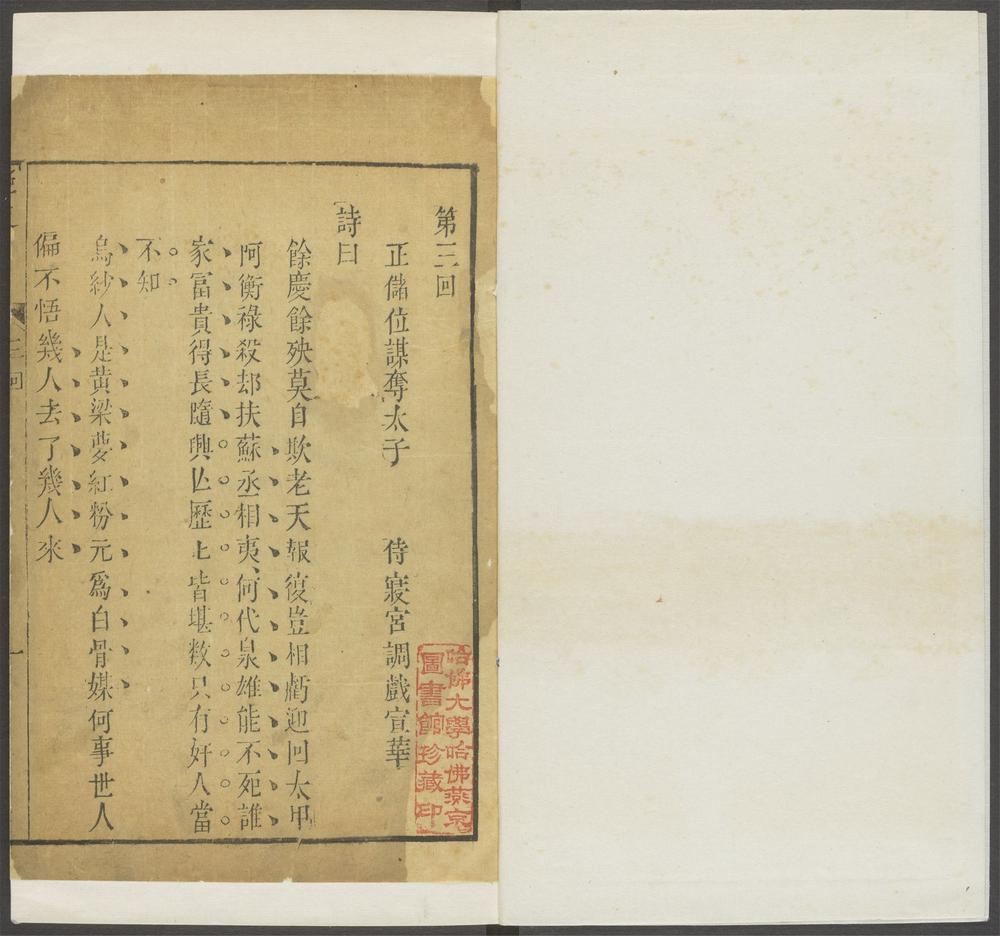 第三回
正儲位謀奪太子　侍寢宮調戲宣華
詩曰
餘慶餘殃莫自欺老天報復豈相虧迎回太甲
阿衡祿殺却扶蘇丞相夷何代梟雄能不死誰
家富貴得長隨興亾歷上皆堪數只有奸人當
不知
烏紗人是黄梁夢紅粉元爲白骨媒何事世人
偏不悟幾人去了幾人來
三回
一
哈佛大學哈佛燕京
圖書館珍藏印